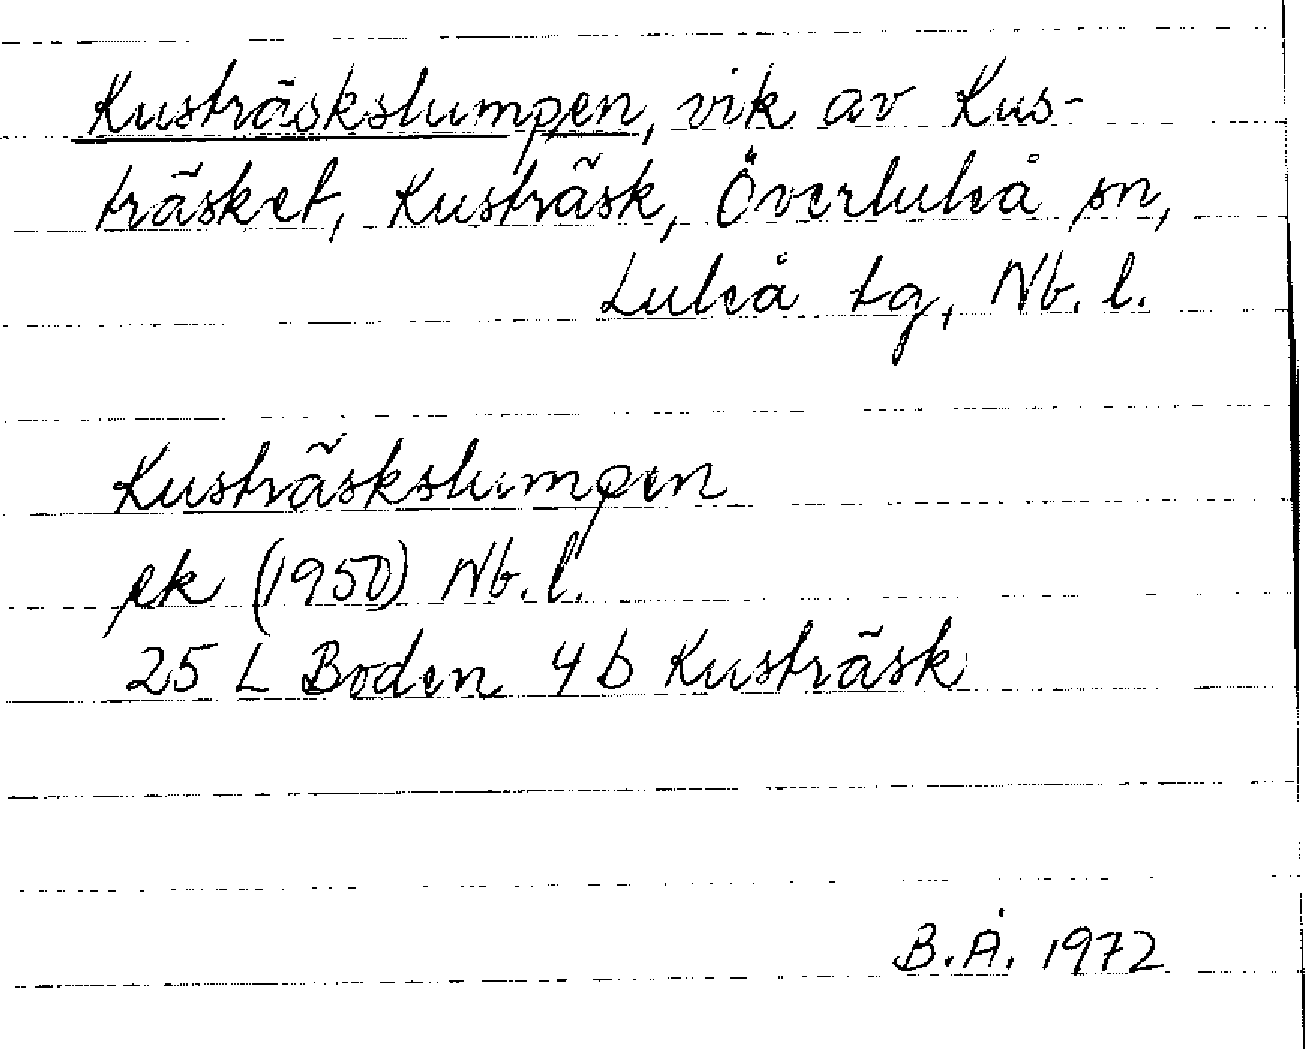 Kusträskslumpen, vik av Kus-
träsket, Kusträsk, Överluleå sn,
Luleå tg, Nb. l.
Kusträskslumpen
ek (1950) Nb. l.
25 L Boden 4 b Kusträsk
B. Å. 1972